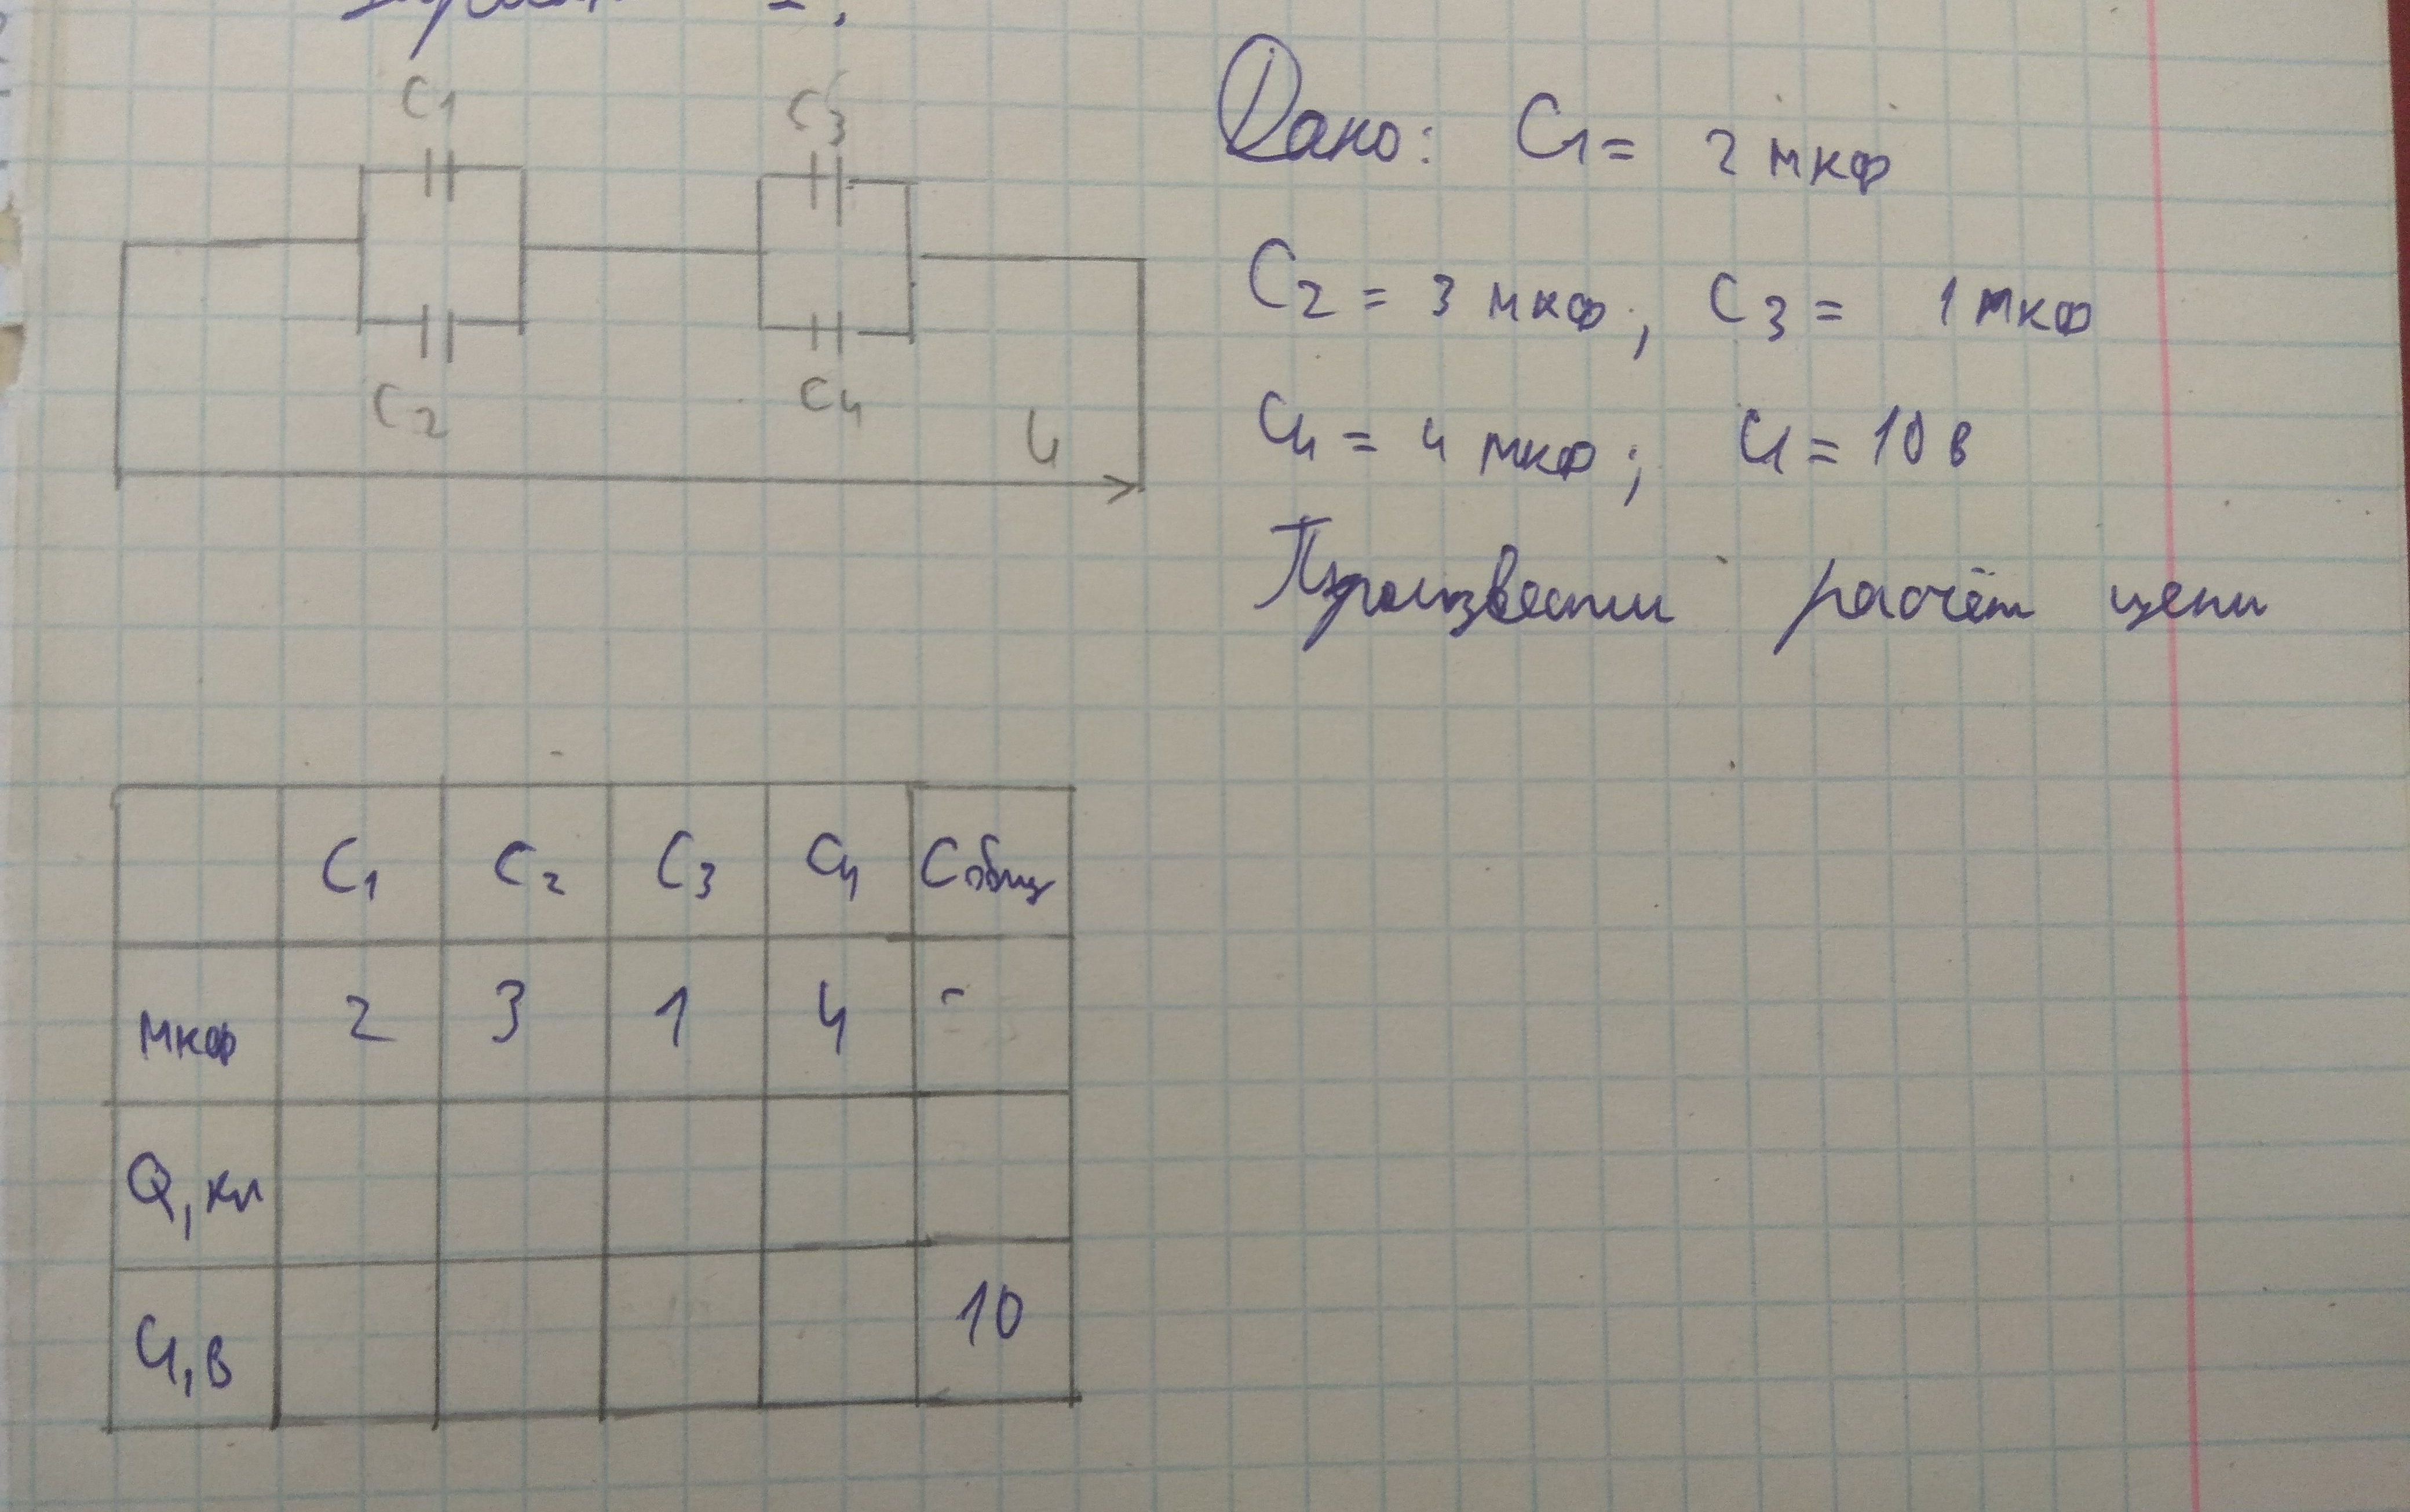 C1
C3
C2
C4
U
Дано: C1 = 2 мкф
C2 = 3 мкф; C3 = 1 мкф
C4 = 4 мкф; U = 10 в
Произвести расчёт цепи
C1 C2 C3 C4 Cобщ
мкф 2 3 1 4 -
Q, кл
U, в 10